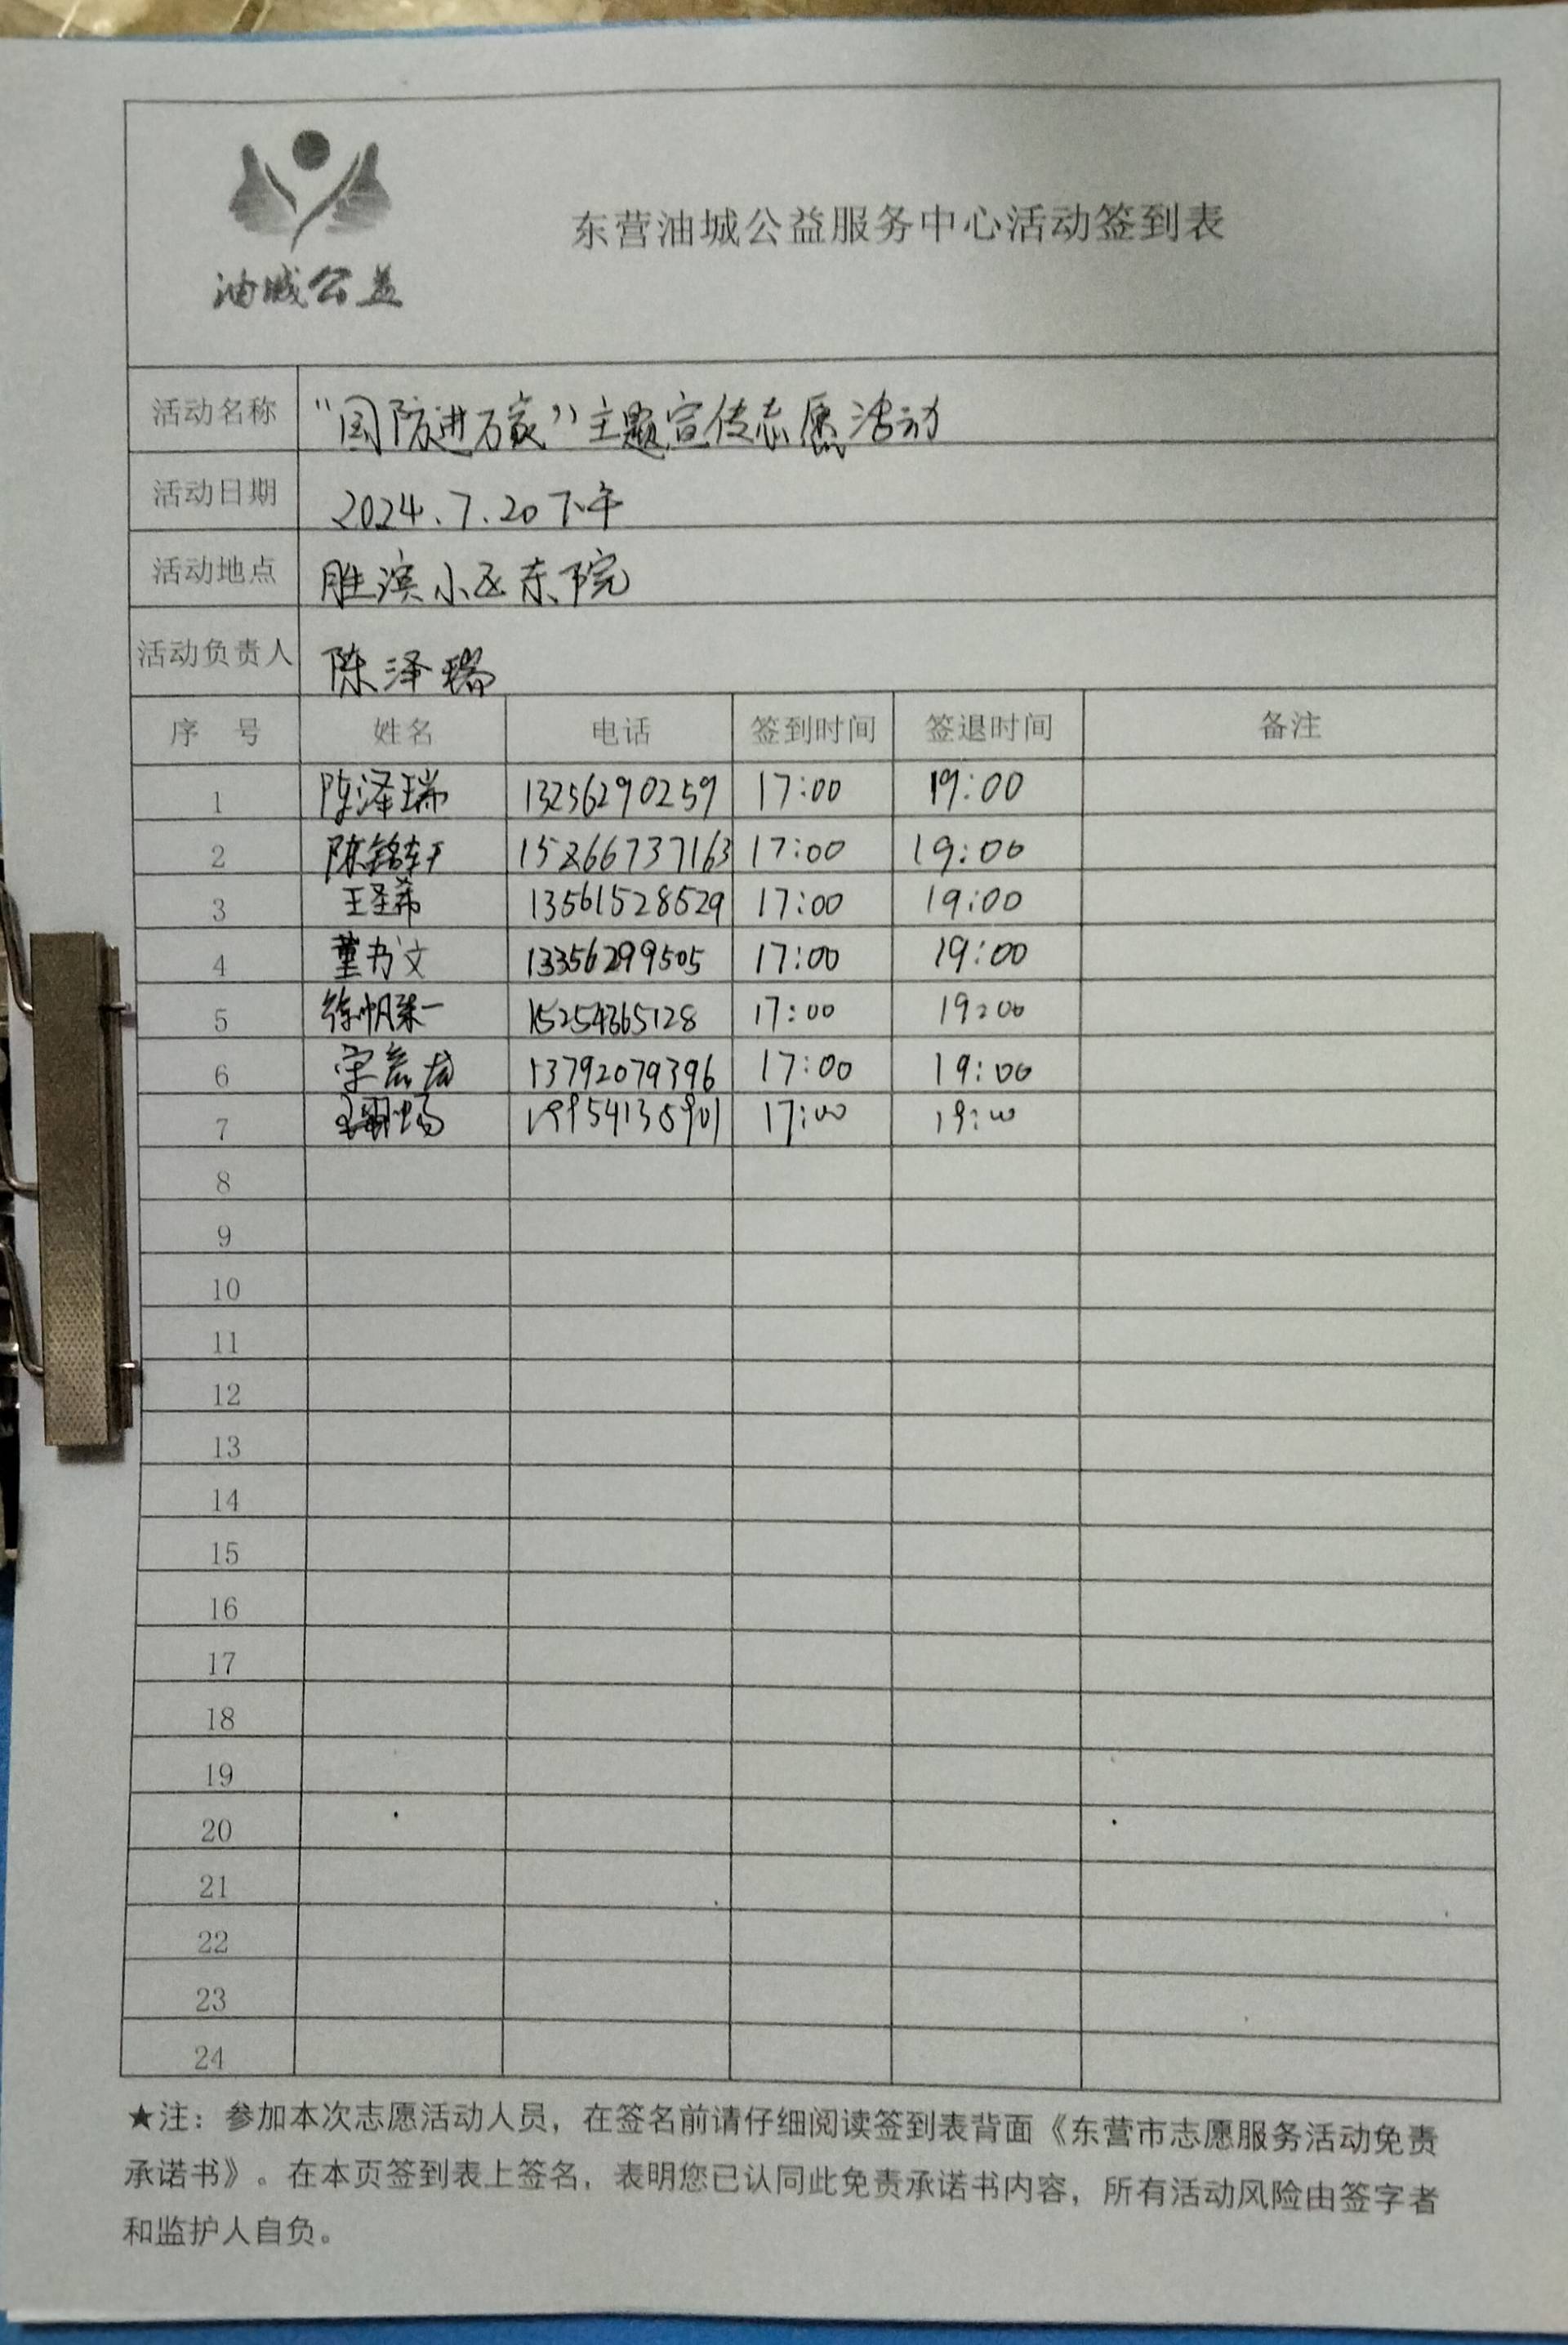 油城公益
东营油城公益服务中心活动签到表
活动名称 “国防进万家”主题宣传志愿活动
活动日期 2024.7.20下午
活动地点 胜滨小区东院
活动负责人 陈泽瑞
序 号 姓名 电话 签到时间 签退时间 备注
1 陈泽瑞 13256290259 17:00 19:00
2 陈铭轩 15266737163 17:00 19:00
3 王圣希 13561528529 17:00 19:00
4 董书文 13356299505 17:00 19:00
5 徐帆一 15254365128 17:00 19:00
6 13792079396 17:00 19:00
7 17:00 19:00
8
9
10
11
12
13
14
15
16
17
18
19
20
21
22
23
24
★注：参加本次志愿活动人员，在签名前请仔细阅读签到表背面《东营市志愿服务活动免责
承诺书》。在本页签到表上签名，表明您已认同此免责承诺书内容，所有活动风险由签字者
和监护人自负。